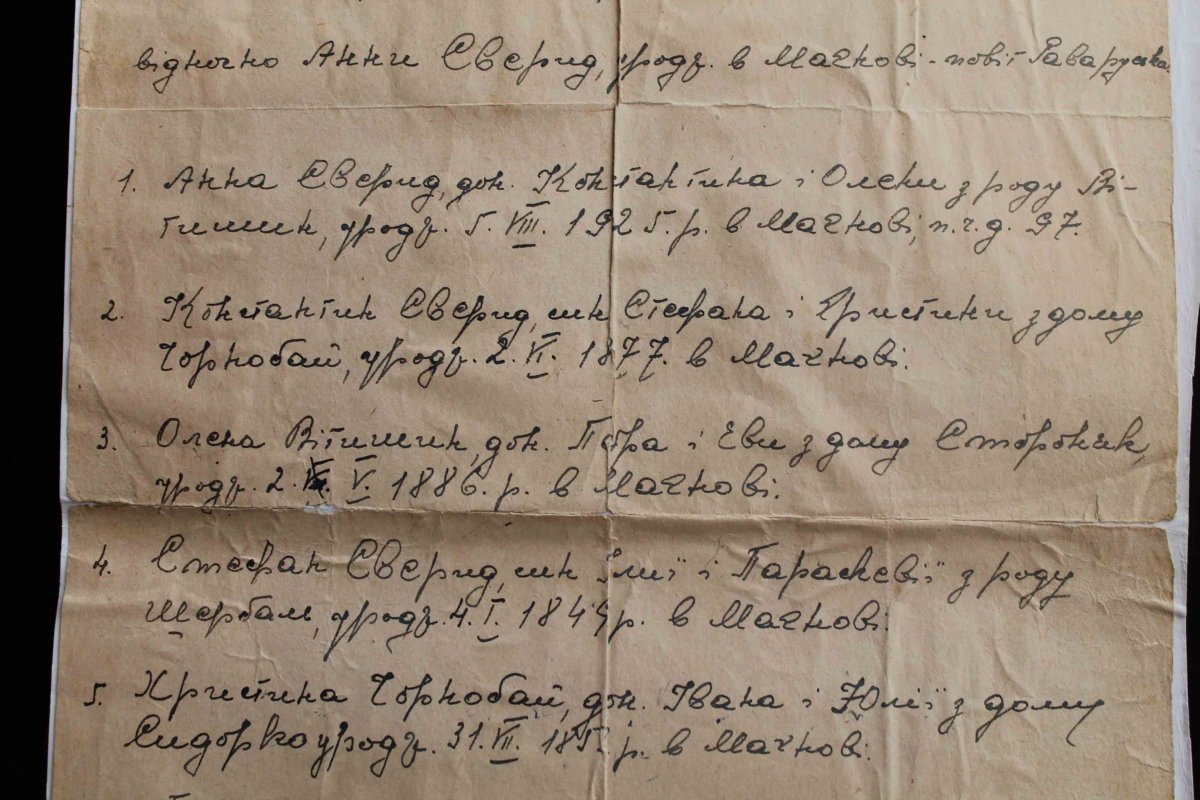 відносно Анни Сверид, уродз. в Мачнові - повіт Раваруська
1. Анна Сверид, дон. Константина і Олени з роду Ві-
тишин, уродз. 5. VIII. 1925. р. в Мачнові, п.ч.д. 97.
2. Константин Сверид, син Стефана і Христини з дому
Чорнобай, уродз. 2. VI. 1877. в Мачнові.
3. Олена Вітишин, дон. Петра і Еви з дому Сторончак,
уродз. 2. V. 1886. р. в Мачнові.
4. Стефан Сверид, син Ілиї і Параскевії з роду
Щербань, уродз. 4. I. 1844 р. в Мачнові.
5. Христина Чорнобай, дон. Івана і Юлії з дому
Сидорко уродз. 31. VII. р. в Мачнові.